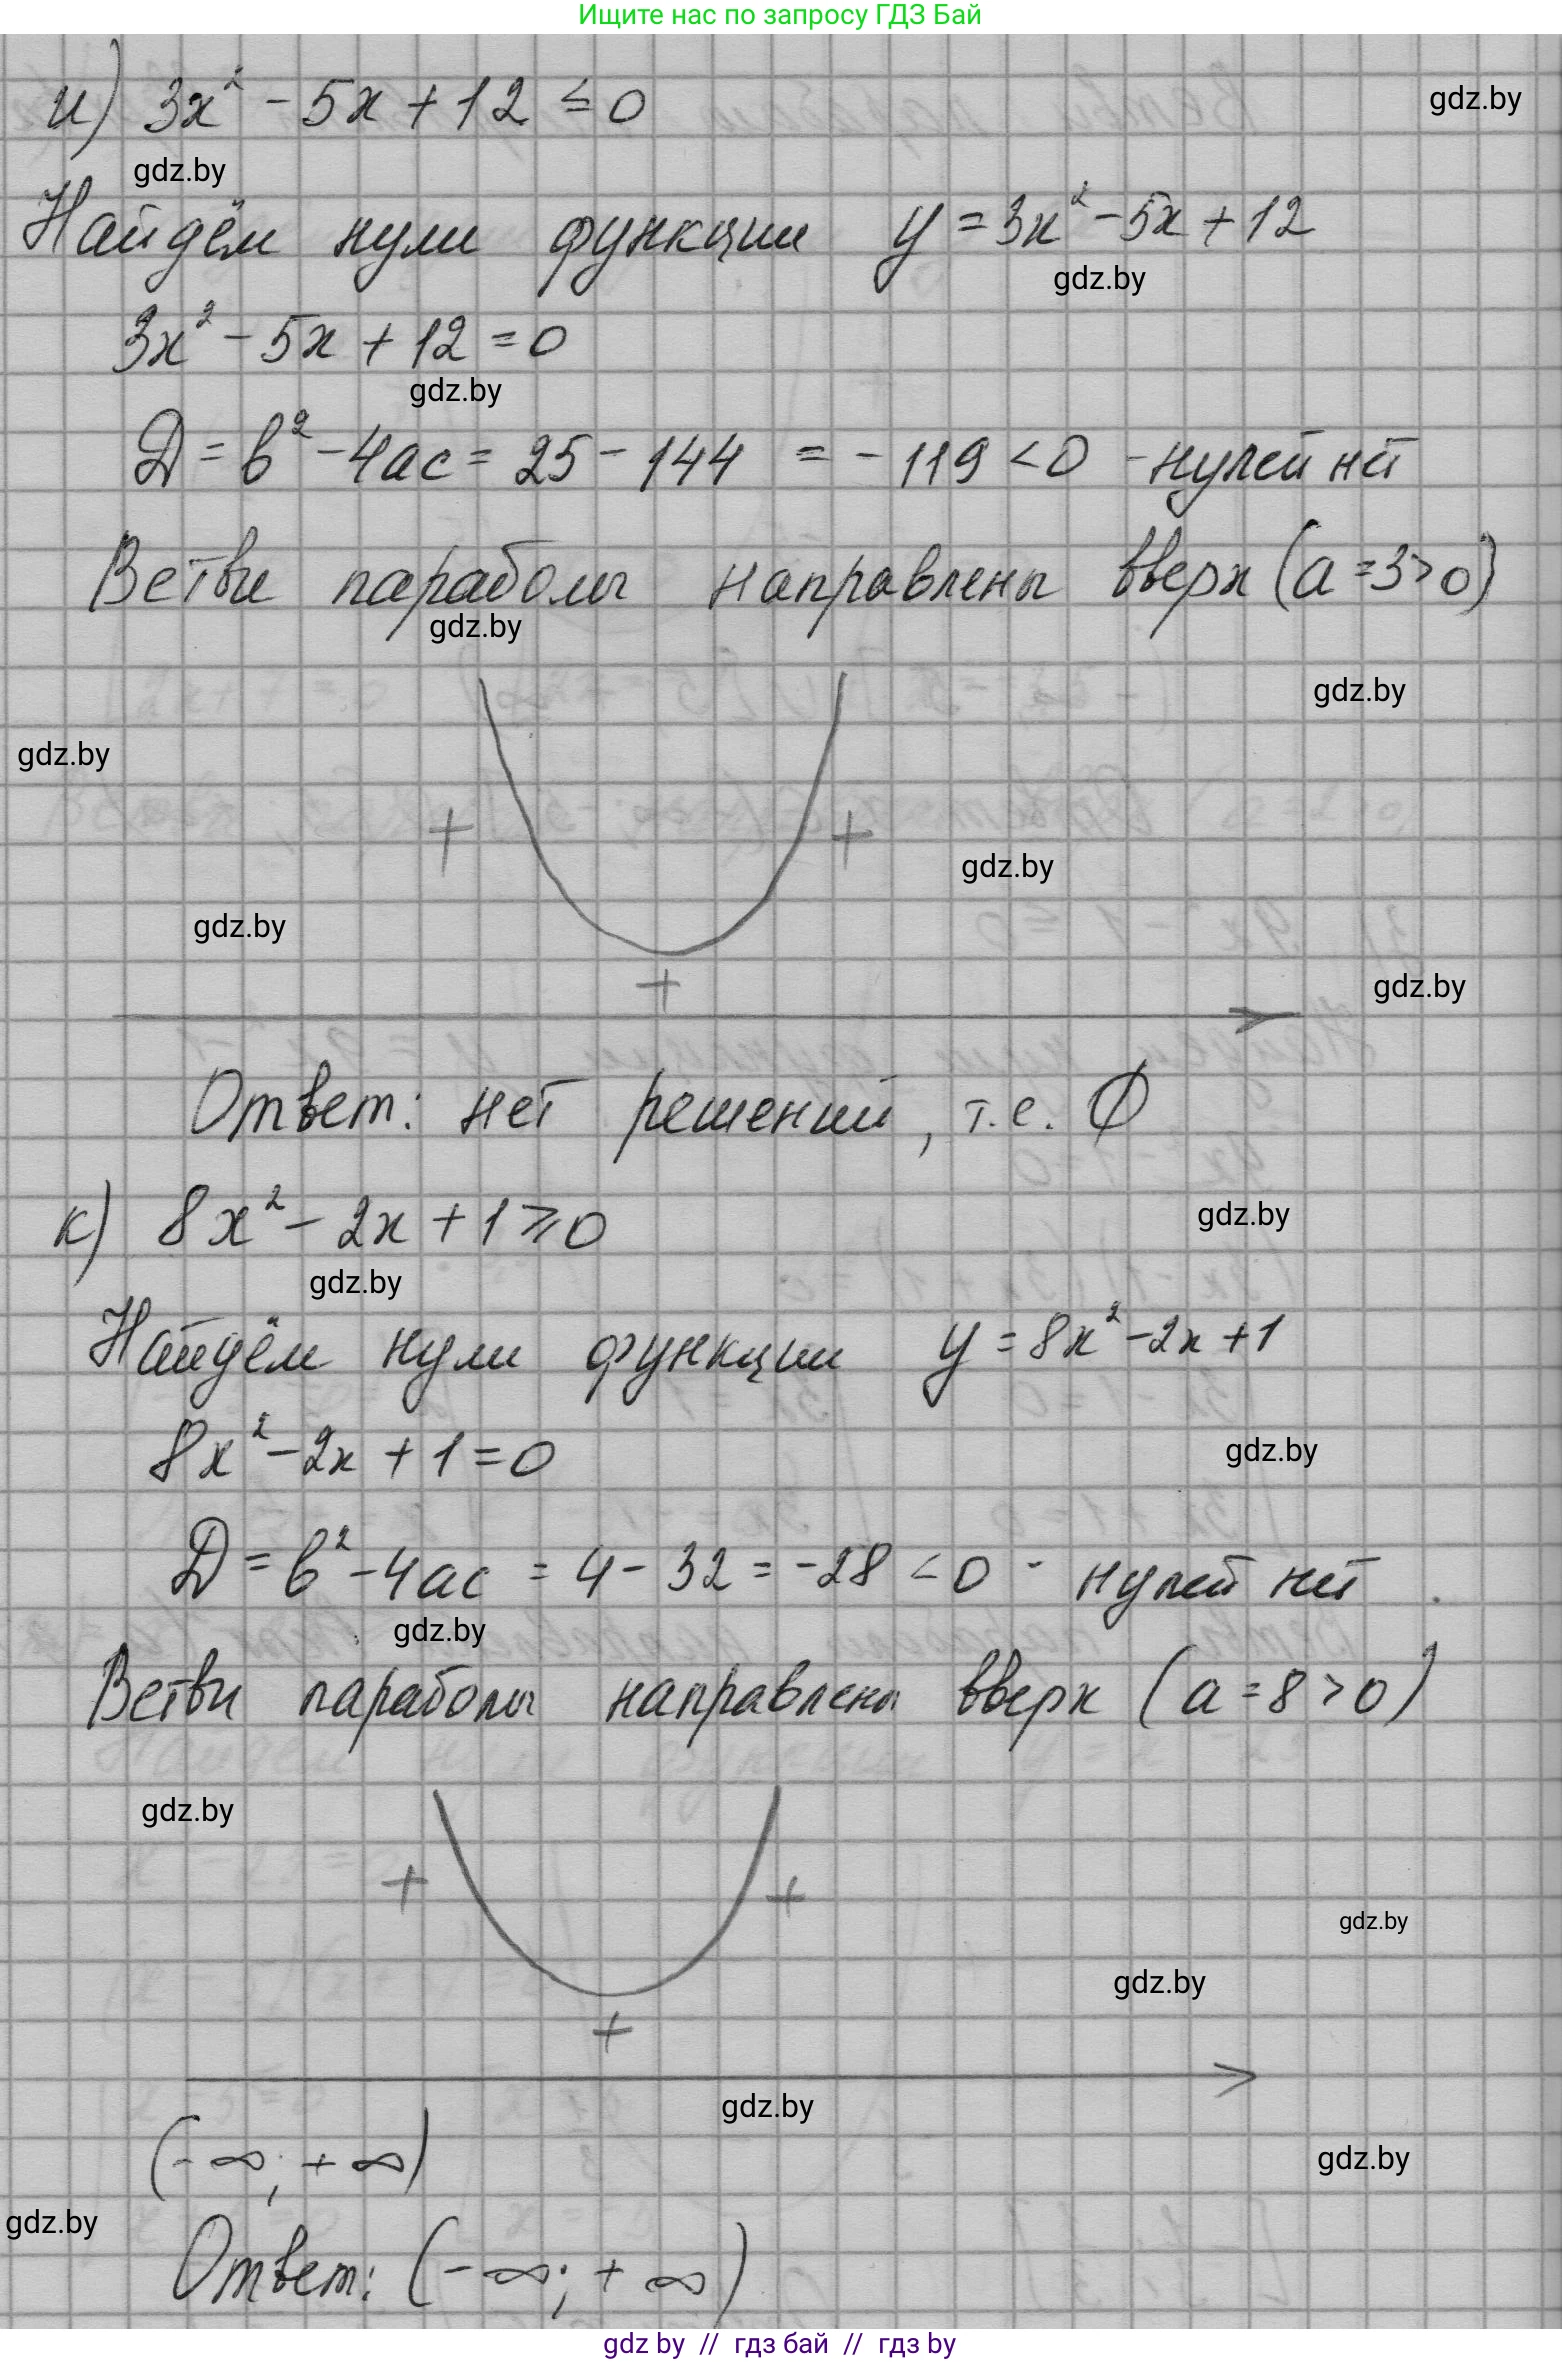 Ищите нас по запросу ГДЗ Бай
и) 3x² - 5x + 12 ≤ 0
gdz.by
gdz.by
Найдём нули функции y = 3x² - 5x + 12
gdz.by
3x² - 5x + 12 = 0
gdz.by
D = b² - 4ac = 25 - 144 = -119 < 0 - нулей нет
Ветви параболы направлены вверх (a = 3 > 0)
gdz.by
gdz.by
gdz.by
+ +
gdz.by
gdz.by
+
gdz.by
Ответ: нет решений, т.е. ∅
к) 8x² - 2x + 1 ≥ 0
gdz.by
gdz.by
Найдём нули функции y = 8x² - 2x + 1
8x² - 2x + 1 = 0
gdz.by
D = b² - 4ac = 4 - 32 = -28 < 0 - нулей нет.
gdz.by
Ветви параболы направлены вверх (a = 8 > 0)
gdz.by
+ +
gdz.by
gdz.by
+
gdz.by
(-∞; +∞)
gdz.by
gdz.by
Ответ: (-∞; +∞)
gdz by // гдз бай // гдз by